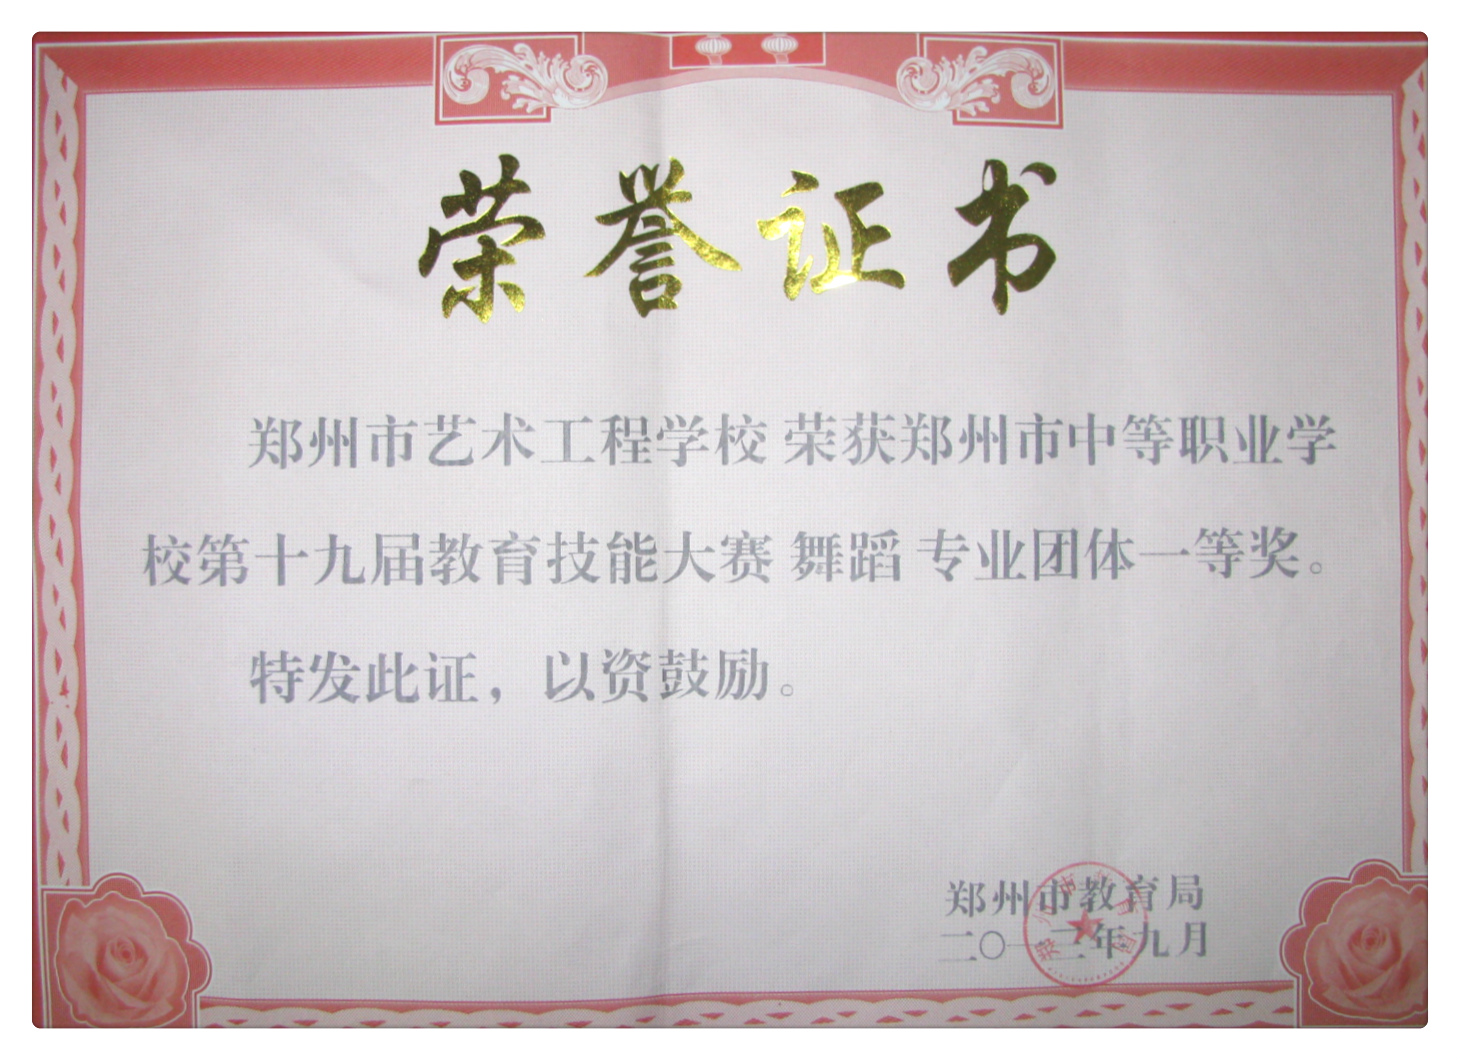 荣誉证书
郑州市艺术工程学校 荣获郑州市中等职业学
校第十九届教育技能大赛 舞蹈 专业团体一等奖。
特发此证，以资鼓励。
郑州市教育局
二〇一二年九月
郑州市教育局